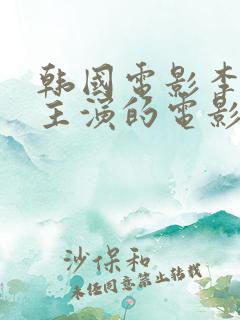 韩國電影李
主演的電影
沙保和
未经同意禁止转载